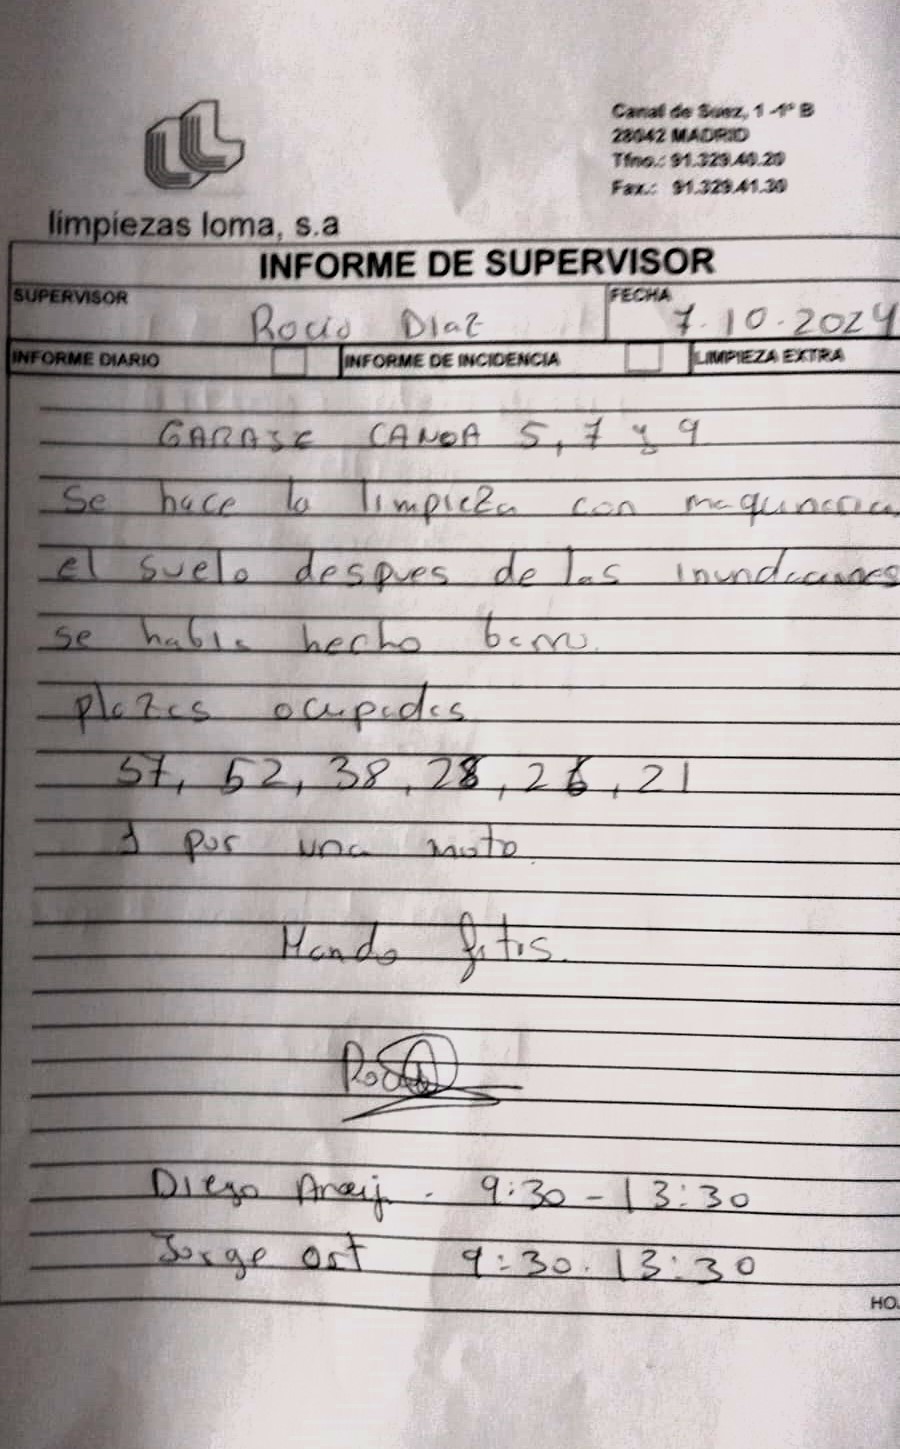 Canal de Suez, 1 -1º B
28042 MADRID
Tfno.: 91.329.40.20
Fax.: 91.329.41.30
limpiezas loma, s.a
INFORME DE SUPERVISOR
SUPERVISOR Rocio Diaz FECHA 7.10.2024
INFORME DIARIO INFORME DE INCIDENCIA LIMPIEZA EXTRA
GARAJE CANOA 5, 7 y 9
Se hace la limpieza con maquinaria
el suelo despues de las inundaciones
se habia hecho barro.
plazas ocupadas
57, 52, 38, 28, 26, 21
1 por una moto.
Mando fotos.
Diego - 9:30 - 13:30
Jorge Ost 9:30 . 13:30
HO